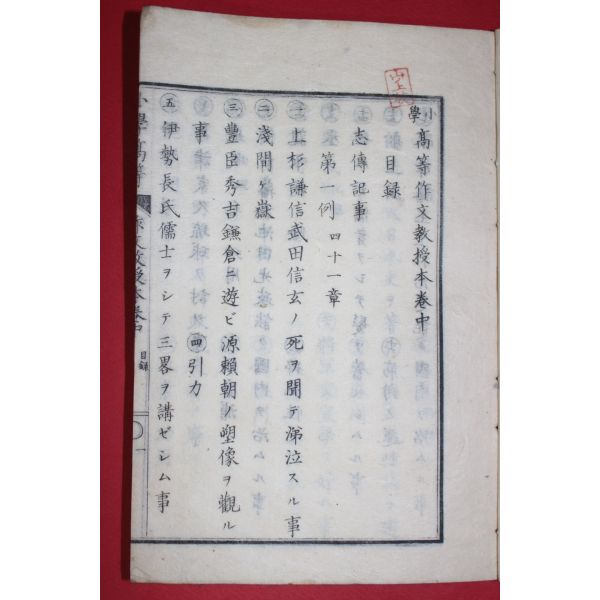 小學高等作文教授本卷中
目録
志傳記事
第一例 四十一章
㊀上杉謙信武田信玄ノ死ヲ聞テ涕泣スル事
㊁淺間ヶ嶽
㊂豐臣秀吉鎌倉ニ遊ビ源賴朝ノ塑像ヲ觀ル
事 ㊃引力
㊄伊勢長氏儒士ヲシテ三畧ヲ講ゼシム事
小學高等作文教授本卷中 目録 一